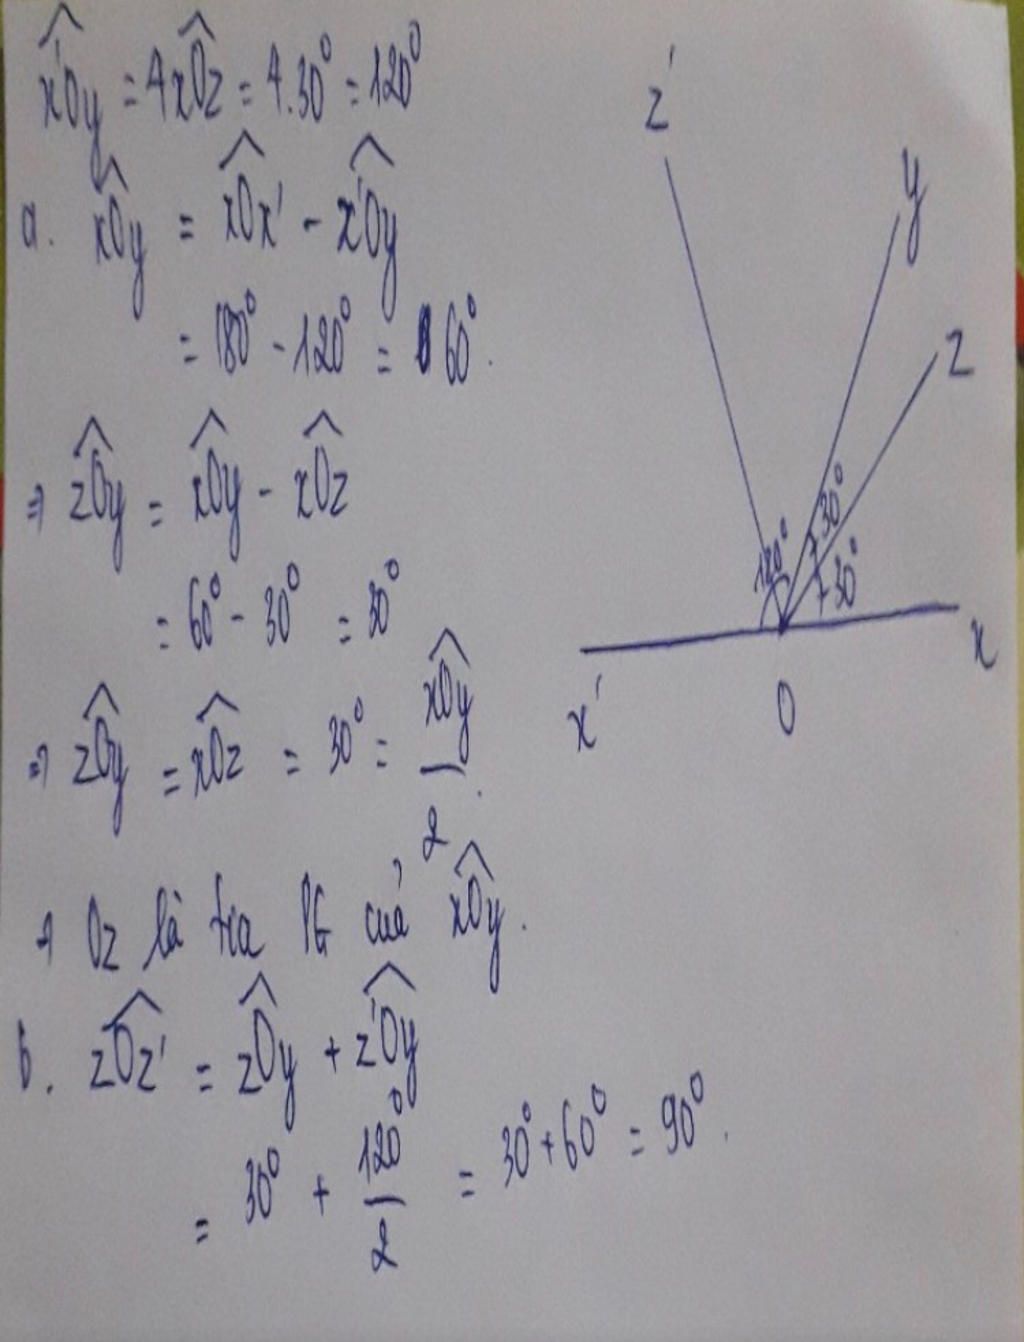 x'Oy = 4xOz = 4.30° = 120°
a. xOy = xOx' - x'Oy
= 180° - 120° = 60°.
⇒ zOy = xOy - xOz
= 60° - 30° = 30°
⇒ zOy = xOz = 30° = xOy / 2.
⇒ Oz là tia PG của xOy.
b. zOz' = zOy + z'Oy
= 30° + 120° / 2 = 30° + 60° = 90°.
z'
y
z
30°
120°
30°
x
x'
O